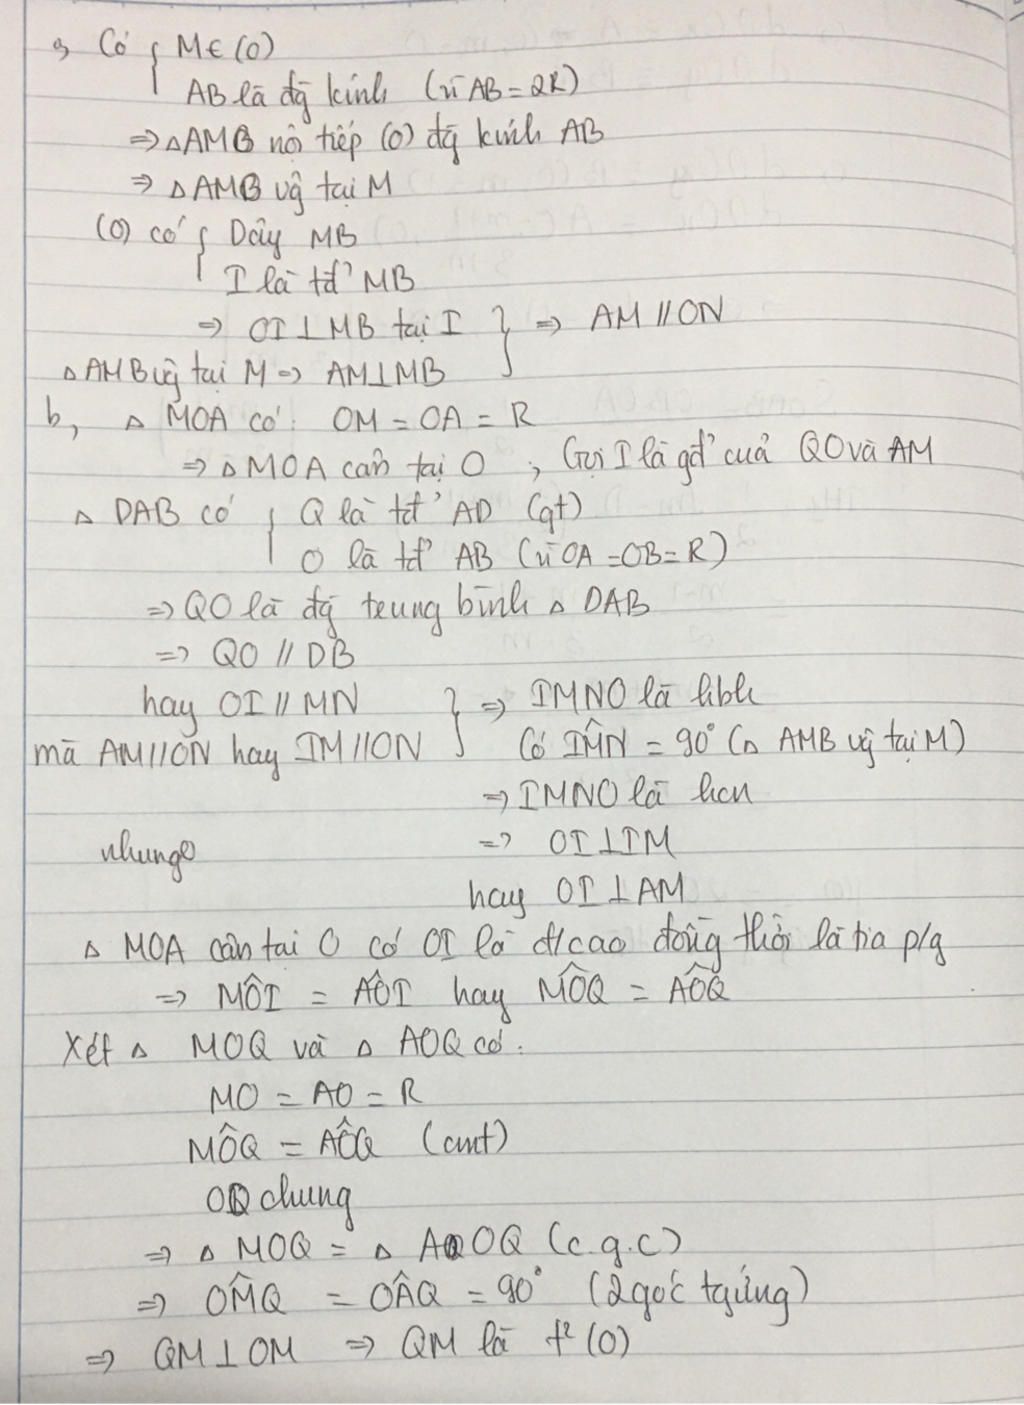 a, Có { M ∈ (O)
AB là đg kính (vì AB = 2R)
⇒ △AMB nội tiếp (O) đg kính AB
⇒ △AMB vg tại M
(O) có { Dây MB
I là tđ' MB
⇒ OI⊥MB tại I } ⇒ AM // ON
△AMB vg tại M ⇒ AM⊥MB
b, △ MOA có: OM = OA = R
⇒ △MOA cân tại O , Gọi I là gđ' của QO và AM
△ DAB có { Q là tđ' AD (gt)
O là tđ' AB (vì OA = OB = R)
⇒ QO là đg trung bình △ DAB
⇒ QO // DB
hay OI // MN } ⇒ IMNO là hbh
mà AM // ON hay IM // ON Có IM̂N = 90° (△ AMB vg tại M)
⇒ IMNO là hcn
nhung ⇒ OI⊥IM
hay OI⊥AM
△ MOA cân tại O có OI là đ/cao đồng thời là tia p/g
⇒ MÔI = AÔI hay MÔQ = AÔQ
Xét △ MOQ và △ AOQ có:
MO = AO = R
MÔQ = AÔQ (cmt)
OQ chung
⇒ △ MOQ = △ AOQ (c.g.c)
⇒ OM̂Q = OÂQ = 90° (2 góc tg ứng)
⇒ QM⊥OM ⇒ QM là t² (O)